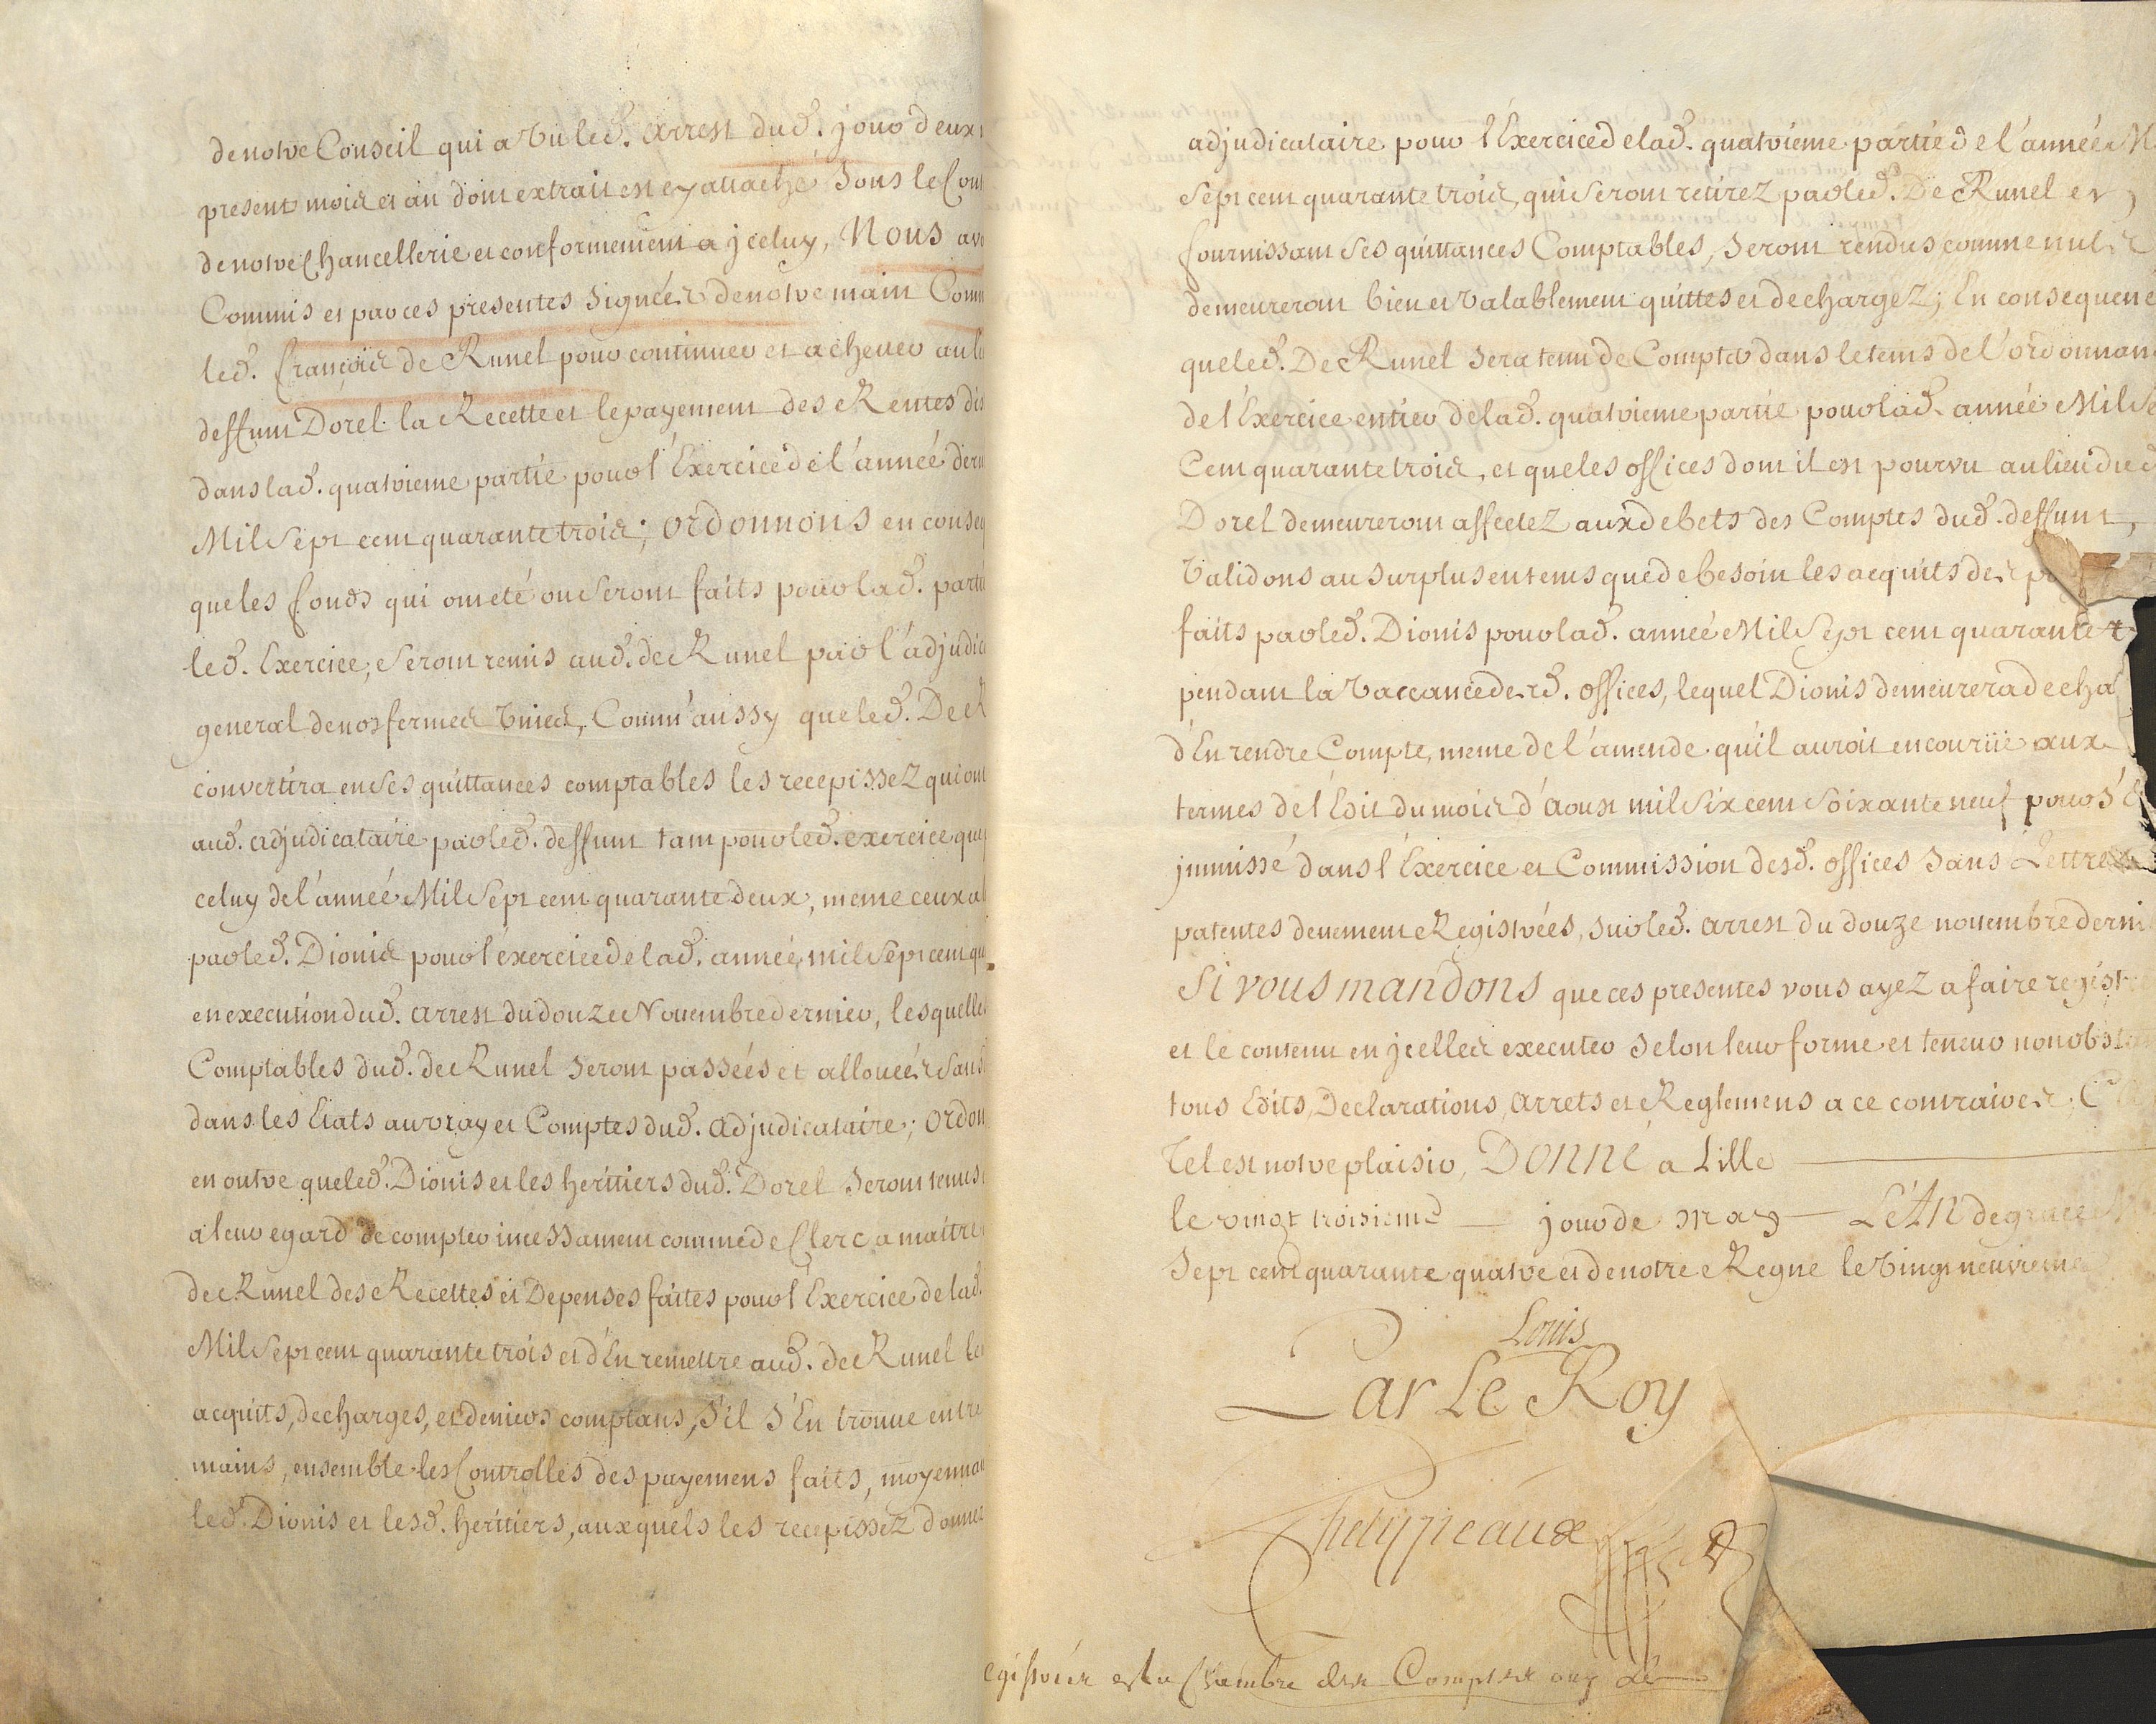 de notre Conseil qui a vû led. arrest dud. jour deux
present mois et an dont extrait est cy attaché sous le Cont
de notre Chancellerie et conformement a jceluy, Nous avo
Commis et par ces presentes signées de notre main Comm
led. François de Runel pour continuer et achever au li
deffunt Dorel la Recette et le payement des Rentes dis
dans lad. quatrieme partie pour l'Exercice de l'année dern
Mil Sept cent quarante trois; ordonnons en conseq
que les fonds qui ont eté ou seront faits pour lad. parti
led. Exercice, seront remis aud. de Runel par l'adjudica
general de nos fermes unies, Comm'aussy que led. De R
convertira en ses quittances comptables les recepissez qui ont
aud. adjudicataire par led. deffunt tant pour led. exercice que
celuy de l'année Mil Sept cent quarante deux, meme ceux
par led. Dionis pour l'exercice de lad. année mil Sept cent qu
en execution dud. arrest du douze Novembre dernier, lesquelles
Comptables dud. de Runel seront passées et allouées sans
dans les Etats au vray et Comptes dud. adjudicataire; ordon
en outre que led. Dionis et les heritiers dud. Dorel seront tenus
a leur egard de compter incessament comme de Clerc a maitre
de Runel des Recettes et Depenses faites pour l'Exercice de lad.
Mil Sept cent quarante trois et d'En remettre aud. de Runel le
acquits, decharges, et deniers comptans, s'il s'En trouve entre
mains, ensemble les Controlles des payemens faits, moyennan
led. Dionis et lesd. heritiers, auxquels les recepissez donne
adjudicataire pour l'Exercice de lad. quatrieme partie de l'année M
Sept cent quarante trois, qui seront retirez par led. De Runel en
fournissant ses quittances Comptables, seront rendus comme nuls
demeureront bien et valablement quittes et dechargez; En consequence
que led. De Runel sera tenu de Compter dans le tems de l'ordonnan
de l'Exercice entier de lad. quatrieme partie pour lad. année Mil Se
Cent quarante trois, et que les offices dont il est pourvu au lieu dud
Dorel demeureront affectez aux debets des Comptes dud. deffunt,
Validons au surplus en tems que de besoin les acquits des p
faits par led. Dionis pour lad. année Mil Sept cent quarante t
pendant la vaccance desd. offices, lequel Dionis demeurera decha
d'En rendre Compte, meme de l'amende qu'il auroit encouriie aux
termes de l'Edit du mois d'aoust mil Six cent Soixante neuf pour s'E
jmmissé dans l'Exercice et Commission desd. offices sans Lettres
patentes deuement Registrées, sur led. arrest du douze novembre derni
Si vous mandons que ces presentes vous ayez a faire registre
et le contenu en jcelles executer selon leur forme et teneur nonobsta
tous Edits, Declarations, arrets et Reglemens a ce contraires. Ca
Tel est notre plaisir, Donné a Lille
le vingt troisieme jour de may L'An de grace M
Sept cent quarante quatre et de notre Regne le vingt neuvieme
Louis
Par Le Roy
Phelypeaux
egistrées en la Chambre des Comptes ouy Le